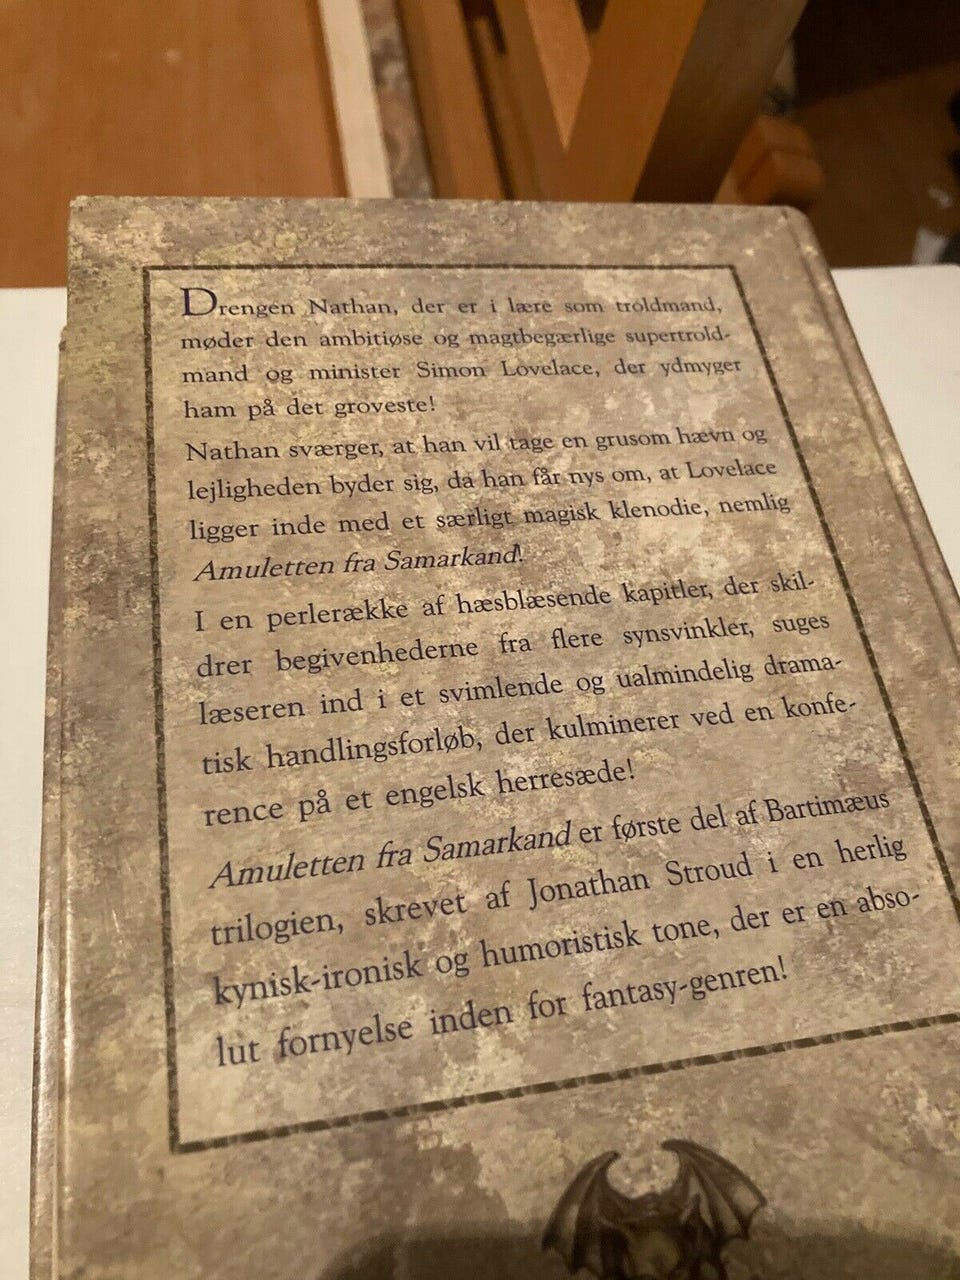 Drengen Nathan, der er i lære som troldmand,
møder den ambitiøse og magtbegærlige supertrold-
mand og minister Simon Lovelace, der ydmyger
ham på det groveste!
Nathan sværger, at han vil tage en grusom hævn og
lejligheden byder sig, da han får nys om, at Lovelace
ligger inde med et særligt magisk klenodie, nemlig
Amuletten fra Samarkand!
I en perlerække af hæsblæsende kapitler, der skil-
drer begivenhederne fra flere synsvinkler, suges
læseren ind i et svimlende og ualmindelig drama-
tisk handlingsforløb, der kulminerer ved en konfe-
rence på et engelsk herresæde!
Amuletten fra Samarkand er første del af Bartimæus
trilogien, skrevet af Jonathan Stroud i en herlig
kynisk-ironisk og humoristisk tone, der er en abso-
lut fornyelse inden for fantasy-genren!